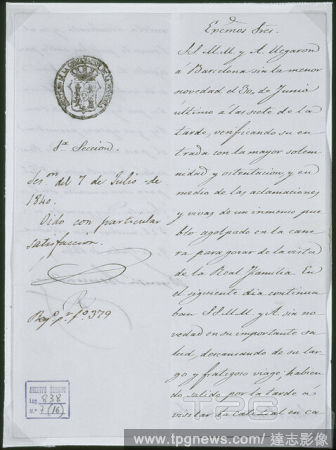 1ª Seccion.
Ses.ᵒⁿ del 7 de Julio de
1840.
Oido con particular
satisfaccion.
Reg.º pr. fº 379
ARCHIVO
Leg. 838
N.º 7 (16)
Excmos Sres.
SS. MM. y A. llegaron
á Barcelona sin la menor
novedad el 30, de Junio
último á las siete de la
tarde, verificando su en
trada con la mayor solem
nidad y ostentacion, y en
medio de las aclamaciones
y vivas de un inmenso pue
blo agolpado en la carre
ra para gozar de la vista
de la Real Familia. En
el siguiente dia continua
ban SS. MM. y A. sin no
vedad en su importante sa
lud, descansando de su lar
go y fatigoso viage, habien
do salido por la tarde á
visitar la Catedral en ca
TPG
www.tpgnews.com / 達志影像